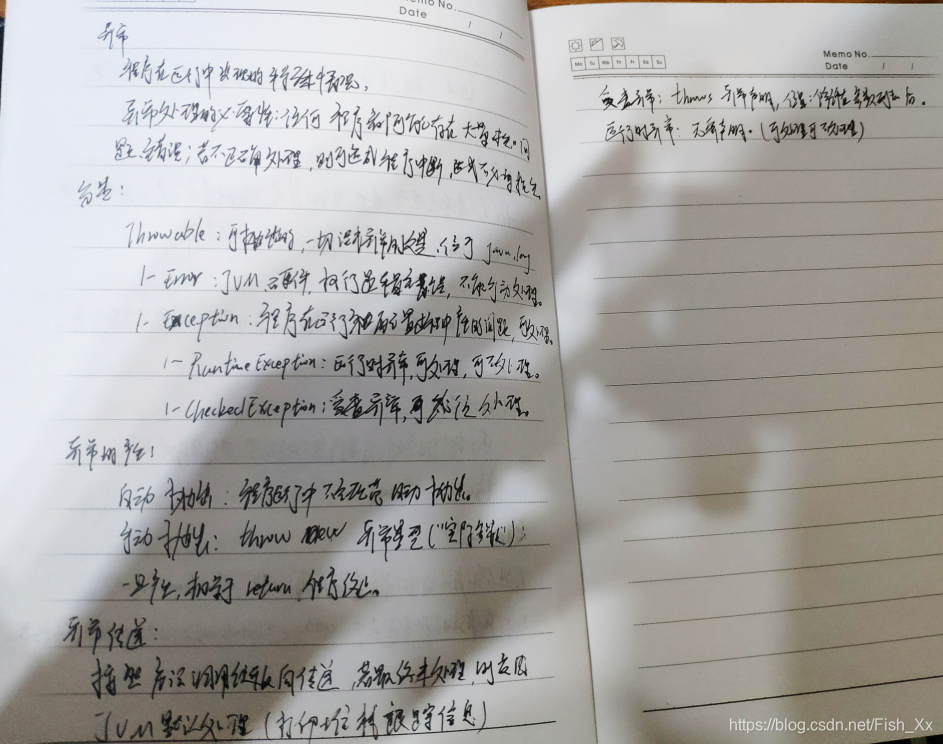 Memo No.
Date / /
异常
程序在运行中出现的不正常现象。
异常处理的必要性：任何程序都可能存在大量未知问
题、错误；若不正确处理，则可造成程序中断，
分类：
Throwable：可抛出的，一切错误异常的父类，位于 java.lang
|- Error：JVM、硬件、执行逻辑错误，不能手动处理。
|- Exception：程序在运行和配置过程中产生的问题，可处理。
|- RuntimeException：运行时异常，可处理，可不处理。
|- CheckedException：受查异常，必须处理。
异常的产生：
自动抛出：程序运行中 自动抛出。
手动抛出：throw new 异常类型("实际参数")；
一旦产生，相当于 return，程序终止。
异常传递：
按照方法调用链反向传递，若最终未处理，则 由
JVM默认处理（打印堆栈跟踪信息）
Mo Tu We Th Fr Sa Su
Memo No.
Date / /
受查异常：throws 异常声明，位置：修饰在参数列表后。
运行时异常：无需声明。（可处理可不处理）
https://blog.csdn.net/Fish_Xx